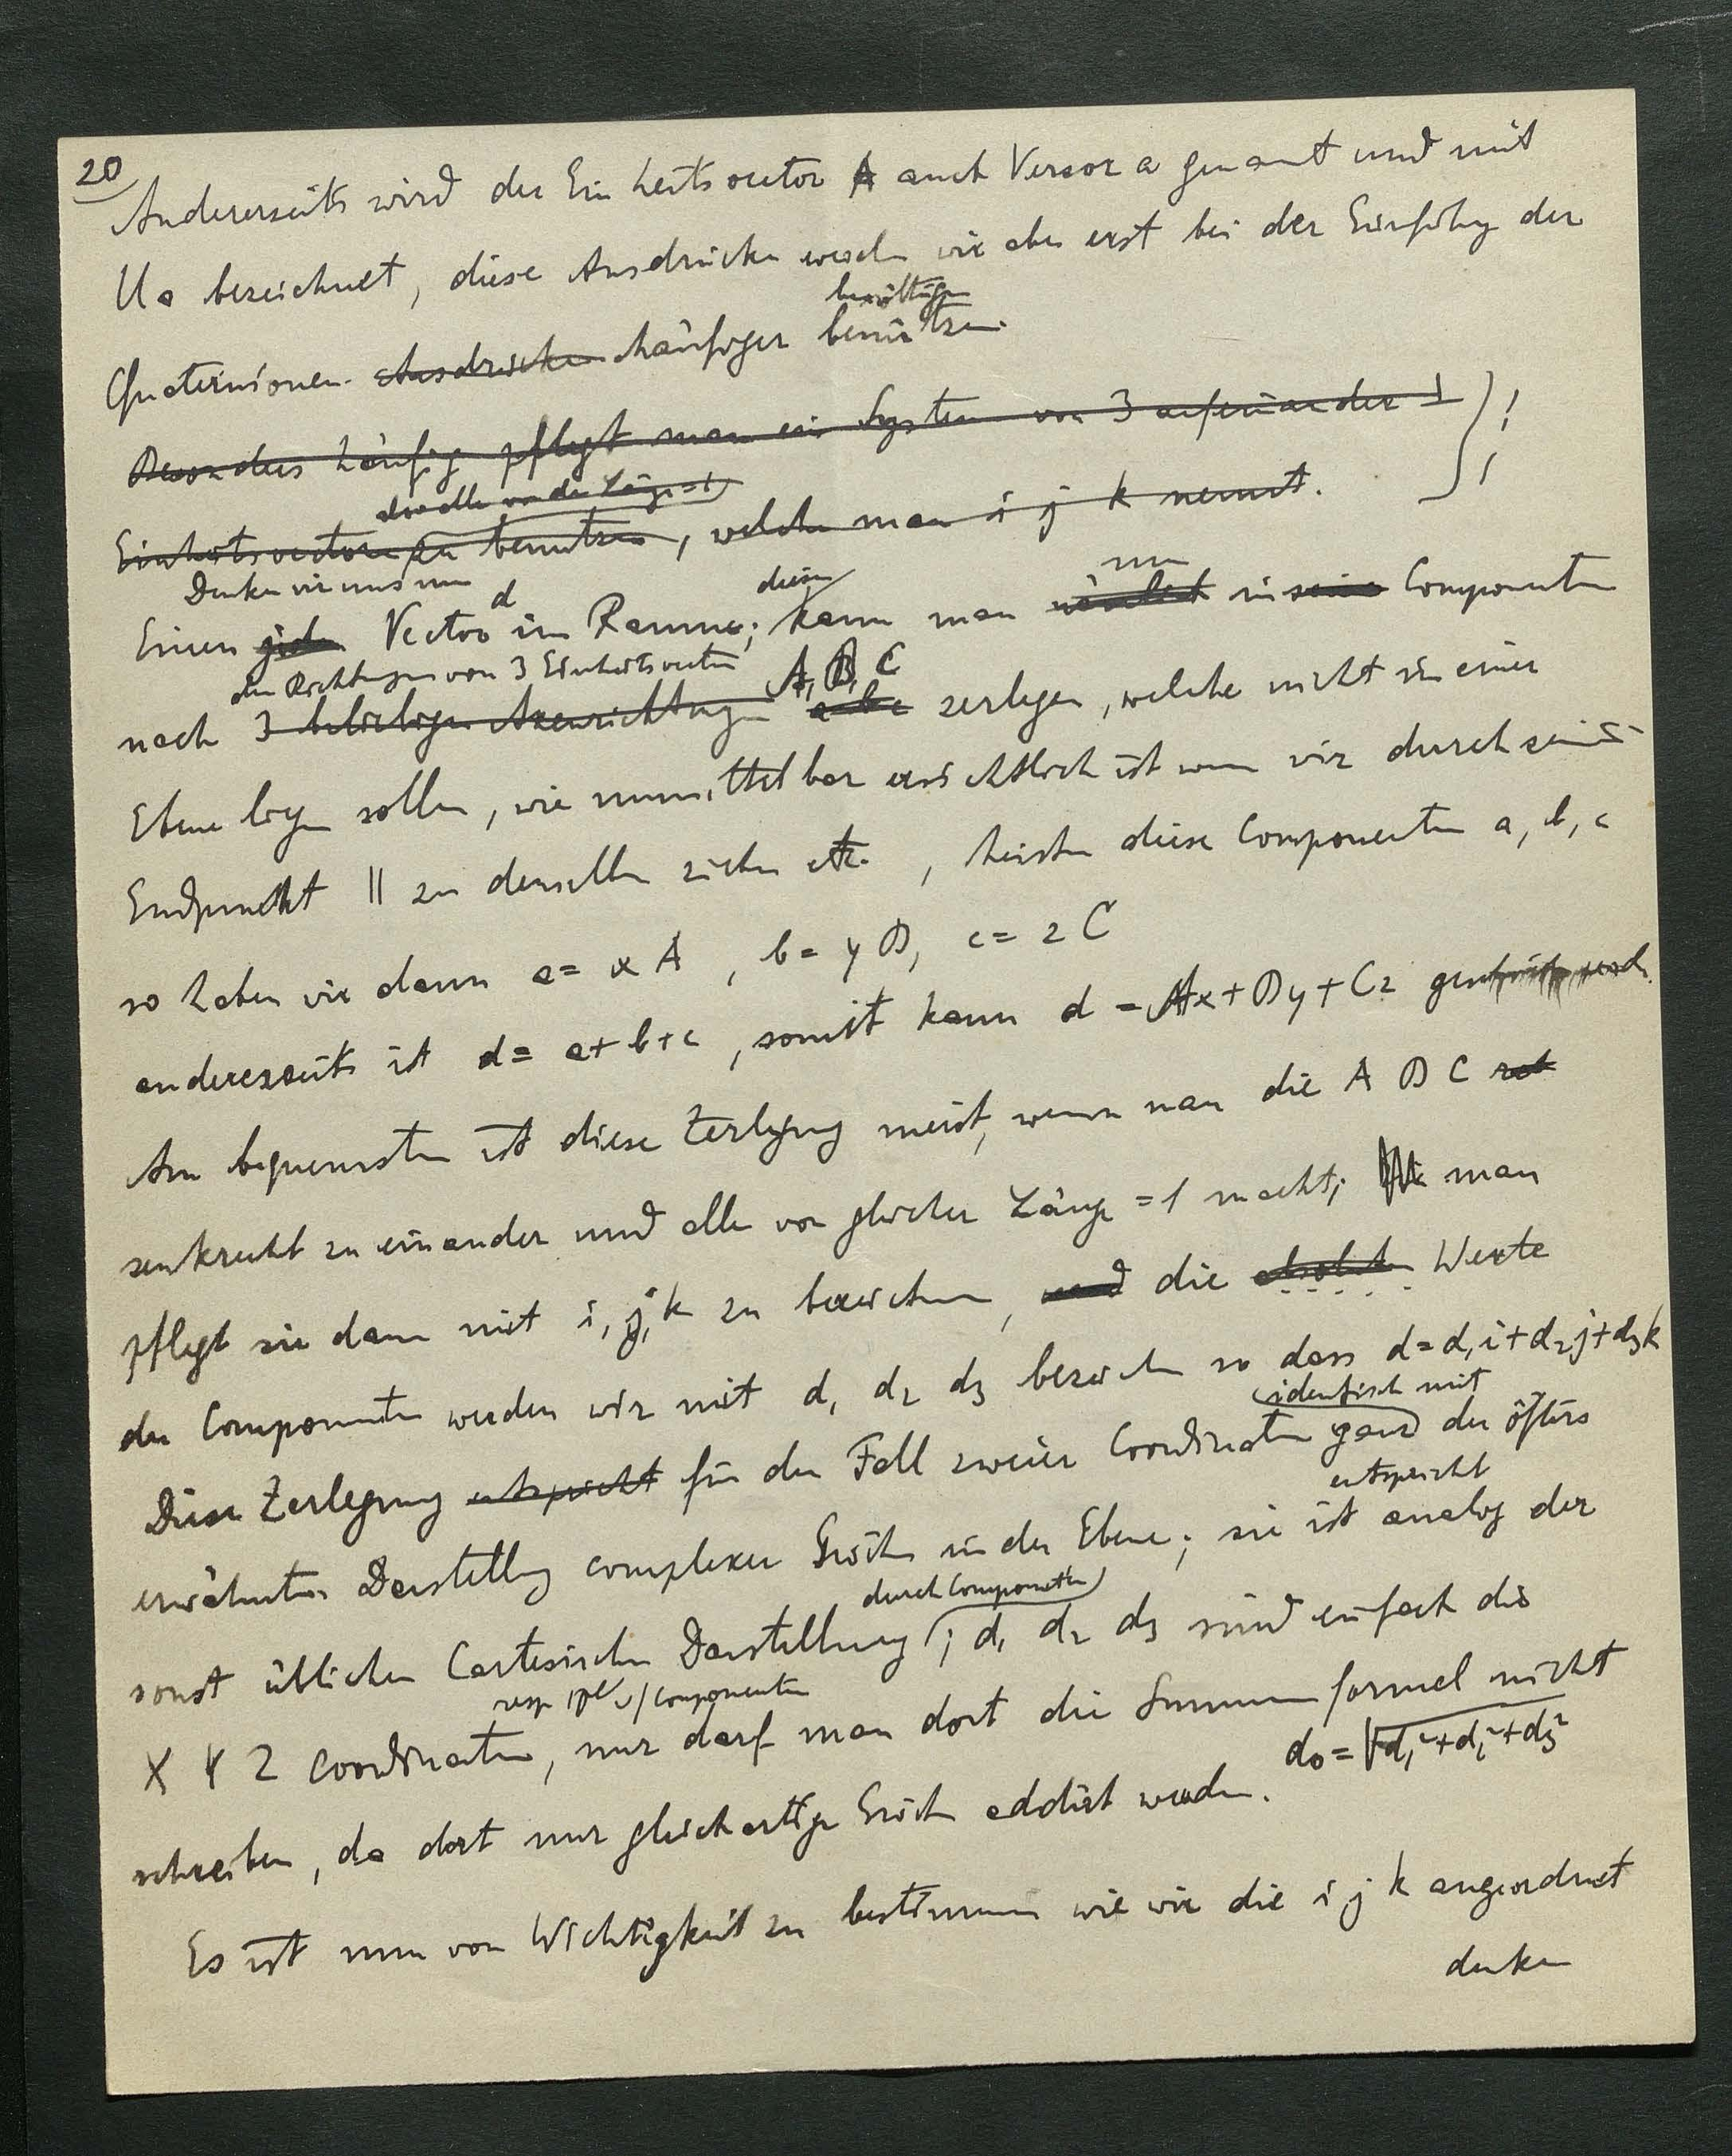 20
Andererseits wird der Einheitsvector A auch Versor a genannt und mit
Ua bezeichnet, diese Ausdrücke werden wir aber erst bei der Einführg der
benöthigen
Quaternionen. Ausdrücken häufiger benützen.
Besonders häufig pflegt man ein System von 3 aufeinander ⊥ !
also alle von der Länge = 1
Einheitsvectoren zu benutzen, welche man i j k nennt. !
Denken wir uns nun
d diesen nun
Einen jeden Vector im Raume; kann man in seine Componenten
den Richtungen von 3 Einheitsvectoren A, B, C
nach 3 beliebigen Axenrichtungen a b c zerlegen, welche nicht in einer
Ebene liegen sollen, wie unmittelbar ersichtlich ist wenn wir durch seinen
Endpunkt || zu denselben ziehen etc. , heissen diese Componenten a, b, c
so haben wir dann a = x A , b = y B, c = z C
andererseits ist d = a+b+c , somit kann d = Ax+By+Cz geschrieben werden.
Am bequemsten ist diese Zerlegung meist, wenn man die A B C
senkrecht zu einander und alle von gleicher Länge = 1 macht; man
pflegt sie dann mit i, j, k zu bezeichnen, und die absoluten Werte
der Componenten werden wir mit d₁ d₂ d₃ bezeichnen so dass d = d₁i+d₂j+d₃k
identisch mit
Diese Zerlegung entspricht für den Fall zweier Coordinaten ganz der öfters
entspricht
erwähnten Darstellung complexer Größen in der Ebene; sie ist analog der
durch Componenten
sonst üblichen Cartesischen Darstellung; d₁ d₂ d₃ sind einfach die
resp Componenten
X Y Z Coordinaten, nur darf man dort die Summenformel nicht
d₀ = √d₁²+d₂²+d₃²
schreiben, da dort nur gleichartige Größen addirt werden.
Es ist nun von Wichtigkeit zu bestimmen wie wir die i j k angeordnet
denken